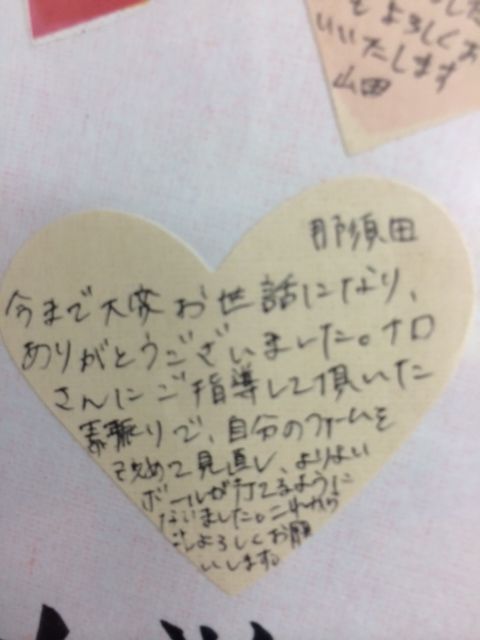 もよろしくお
いいたします
山田
那須田
今まで大変お世話になり、
ありがとうございました。ナロ
さんにご指導して頂いた
素振りで、自分のフォームを
改めて見直し、よりよい
ボールが打てるように
なりました。これから
もよろしくお願
いします。